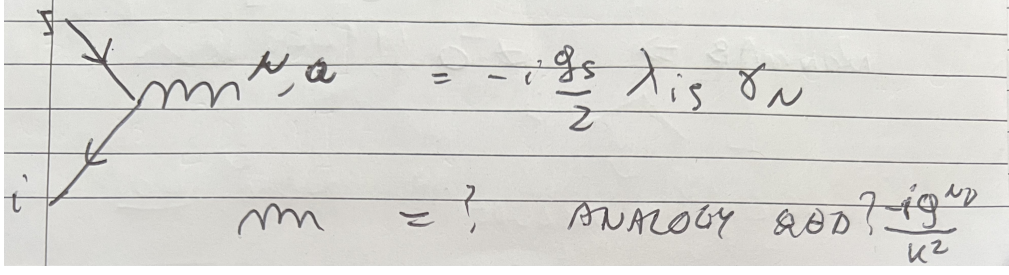 j μ, a = -i g_s/2 λ_ij γ_μ
i m = ? ANALOGY QED? -ig^μν/k²